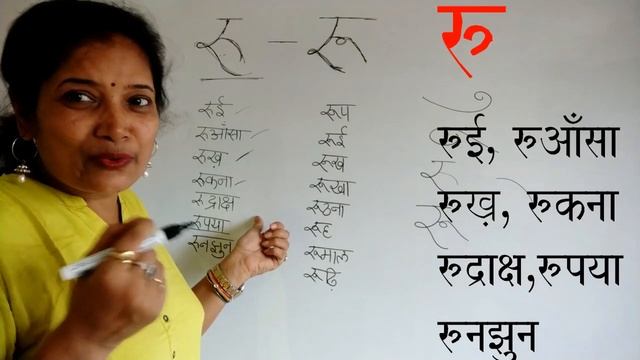 रु - रू
रुई
रुआँसा
रुख़
रुकना
रुद्राक्ष
रुपया
रुनझुन
रूप
रूई
रूठना
रूह
रूमाल
रूढ़ि
रु
रुई, रुआँसा
रुख़, रुकना
रुद्राक्ष,रुपया
रुनझुन